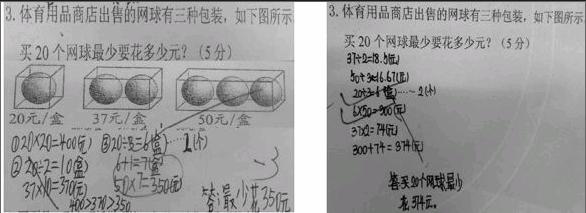 3.体育用品商店出售的网球有三种包装,如下图所示
买20个网球最少要花多少元?(5分)
20元/盒 37元/盒 50元/盒
①20×20=400(元)
②20÷2=10(盒)
37×10=370(元)
400>370>350
③20÷3=6(盒)……2(个)
6+1=7(盒)
50×7=350(元)
答:最少花350元
-3
3.体育用品商店出售的网球有三种包装,如下图所示
买20个网球最少要花多少元?(5分)
37÷2=18.5(元)
50÷3≈16.67(元)
20÷3=6(盒)……2(个)
6×50=300(元)
37×2=74(元)
300+74=374(元)
答:买20个网球最少
花374元。